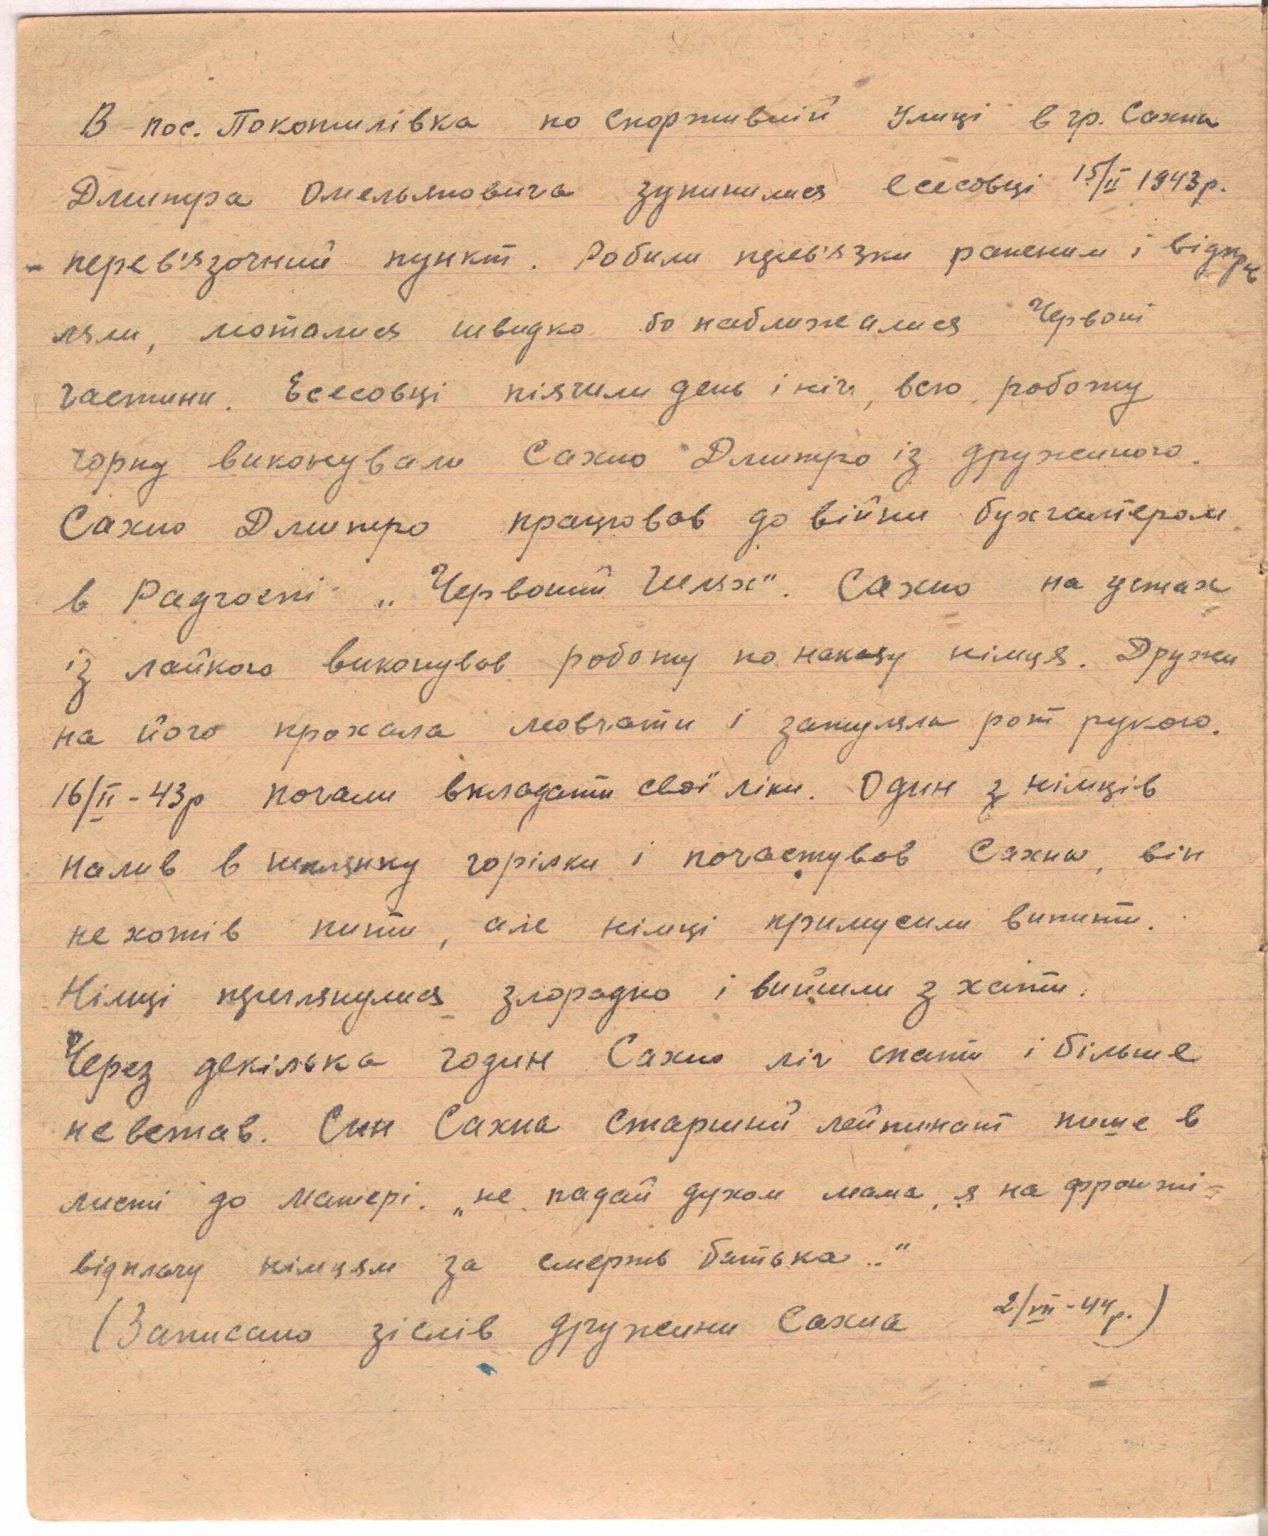 В пос. Покотилівка по Спортивній Улиці в гр. Сахна
Дмитра Омельяновича зупинилися есесовці 15/II 1943р.
- перев'язочний пункт. Робили перев'язки раненим і відправ
ляли, моталися швидко бо наближалися Червоні
частини. Есесовці піячили день і ніч, всю роботу
чорну виконували Сахно Дмитро із дружиною.
Сахно Дмитро працював до війни бухгалтером
в Радгоспі „Червоний Шлях". Сахно на устах
із лайкою виконував роботу по наказу німця. Дружи
на його прохала мовчати і затуляла рот рукою.
16/II-43р почали вкладати свої ліки. Один з німців
налив в склянку горілки і почастував Сахна, він
не хотів пити, але німці примусили випити.
Німці переглянулися злорадно і вийшли з хати.
Через декілька годин Сахно ліг спати і більше
не встав. Син Сахна старший лейтинант пише в
листі до матері. „не падай духом мама, я на фронті-
відплачу німцям за смерть батька.."
(Записано зіслів дружини Сахна 2/VII-44р.)